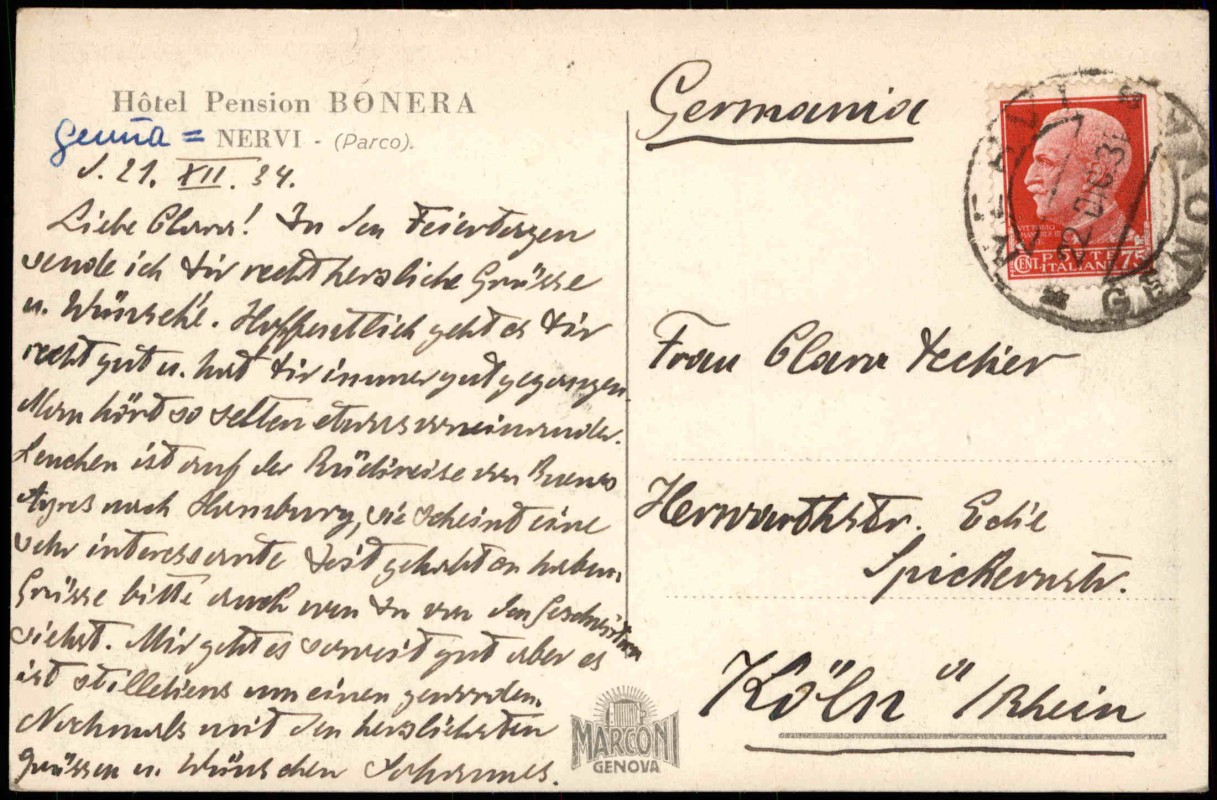 Hôtel Pension BONERA
Genua = NERVI - (Parco).
d. 21. XII. 34.
Liebe Clara! Zu den Feiertagen
sende ich Dir recht herzliche Grüsse
u. Wünsche. Hoffentlich geht es Dir
recht gut u. hat Dir immer gut gegangen.
Man hört so selten etwas voneinander.
Lenchen ist auf der Rückreise von Buenos
Ayres nach Hamburg, sie scheint eine
sehr interessante Zeit gehabt zu haben.
Grüsse bitte auch wen Du von den Geschwistern
siehst. Mir geht es soweit gut aber es
ist still um einen geworden.
Nochmals mit den herzlichsten
Grüssen u. Wünschen Johannes.
Germania
VITTORIO
CENT. POSTE 75
ITALIANE
22 DIC 3
GENOVA
Frau Clara Decker
Herwarthstr. Ecke
Spichernstr.
Köln a/Rhein
MARCONI
GENOVA